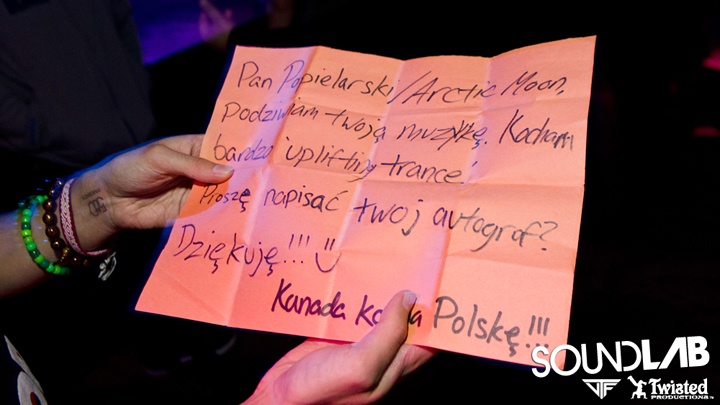 Pan Popielarski/Arctic Moon,
Podziwiam twoją muzykę. Kocham
bardzo 'uplifting trance'!
Proszę napisać twoj autograf?
Dziękuję!!!
Kanada Polskę!!!
SOUNDLAB
Twisted
PRODUCTIONS